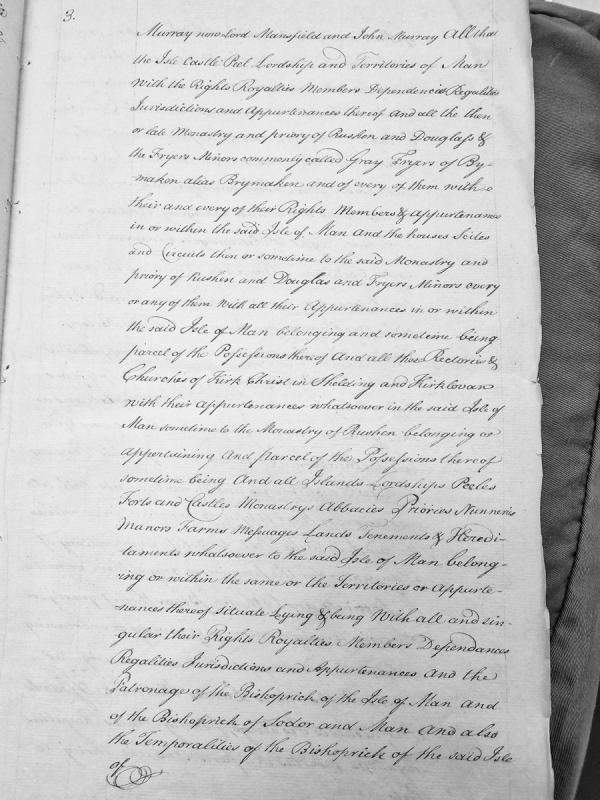 3.
Murray now Lord Mansfield and John Murray All that
the Isle Castle Peel Lordship and Territories of Man
with the Rights Royalties Members Dependencies Regalities
Jurisdictions and Appurtenances thereof And all the then
or late Monastry and priory of Rushen and Douglass &
the Fryers Minors commonly called Gray Fryers of By-
maken alias Brymaken and of every of them with
their and every of their Rights Members & Appurtenance
in or within the said Isle of Man And the houses Scites
and Circuits then or sometime to the said Monastry and
priory of Rushen and Douglas and Fryers Minors every
or any of them With all their Appurtenances in or within
the said Isle of Man belonging and sometime being
parcel of the Possessions thereof And all those Rectories &
Churches of Kirk Christ in Shelding and Kirklovan
with their Appurtenances whatsoever in the said Isle of
Man sometime to the Monastry of Rushen belonging or
appertaining And Parcel of the Possessions thereof
sometime being And all Islands Lordships Peeles
Forts and Castles Monastrys Abbacies Priories Nunneries
Manors Farms Messuages Lands Tenements & Heredi-
taments whatsoever to the said Isle of Man belong-
ing or within the same or the Territories or Appurte-
nances thereof Situate Lying & being With all and sin-
gular their Rights Royalties Members Dependances
Regalities Jurisdictions and Appurtenances And the
Patronage of the Bishoprick of the Isle of Man and
of the Bishoprick of Sodor and Man And also
the Temporalities of the Bishoprick of the said Isle
of